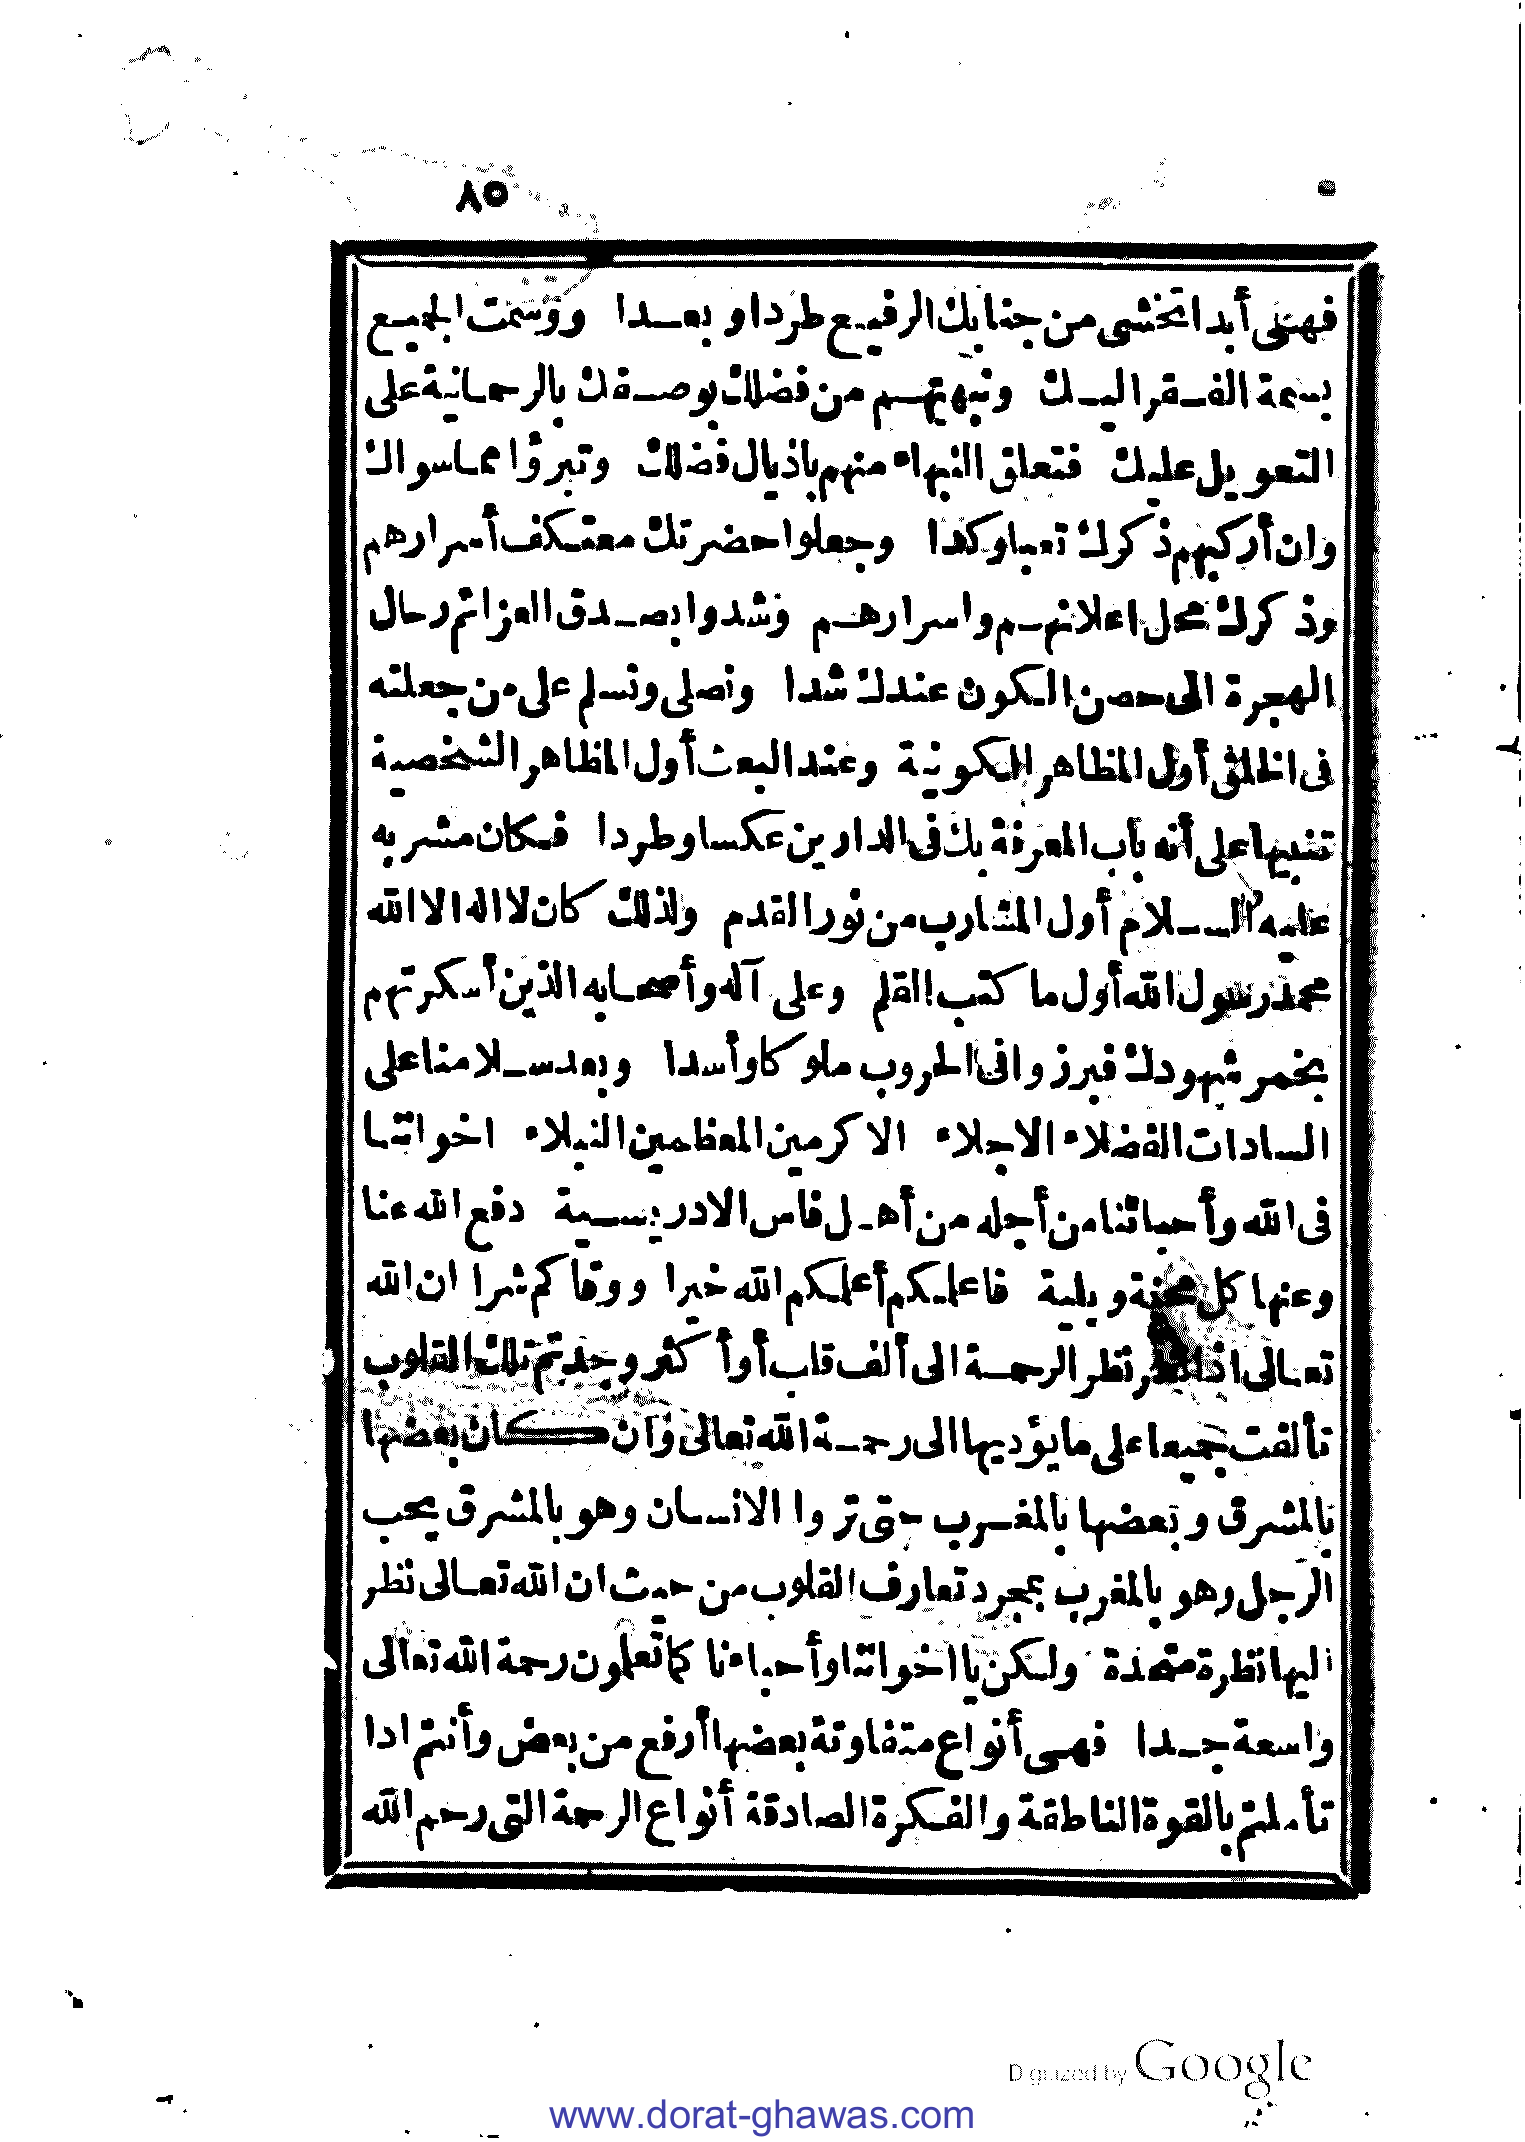 ٨٥
فهى أبدا تخشى من جنابك الرفيع طردا وبعدا ووسمت الجميع
بسمة الفقر اليك ونبهتهم من فضلك بوصفك بالرحمانية على
التعويل عليك فتعلق النبهاء منهم باذيال فضلك وتبرؤا مما سواك
وان أركبهم ذكرك تعبا وكدا وجعلوا حضرتك معتكف أسرارهم
وذكرك محل اعلانهم واسرارهم وشدوا بصدق العزائم رحال
الهجرة الى حصن الكون عندك شدا ونصلى ونسلم على من جعلته
فى الخلق أول المظاهر الكونية وعند البعث أول المظاهر الشخصية
تنبيها على أنه باب المعرفة بك فى الدارين عكسا وطردا فكان مشربه
عليه السلام أول المشارب من نور القدم ولذلك كان لا اله الا الله
محمد رسول الله أول ما كتب القلم وعلى آله وأصحابه الذين أسكرتهم
بخمر شهودك فبرزوا فى الحروب ملوكا وأسدا وبعد سلامنا على
السادات الفضلاء الاجلاء الاكرمين المعظمين النبلاء اخواننا
فى الله وأحبائنا من أجله من أهل فاس الادريسية دفع الله عنا
وعنها كل محنة وبلية فاعليكم أعلمكم الله خيرا ووقاكم شرا ان الله
تعالى اذا نظر نظر الرحمة الى ألف قلب أو أكثر وجدتم تلك القلوب
تألفت جميعا على ما يؤديها الى رحمة الله تعالى وان كان بعضها
بالمشرق وبعضها بالمغرب حتى تروا الانسان وهو بالمشرق يحب
الرجل وهو بالمغرب بمجرد تعارف القلوب من حيث ان الله تعالى نظر
اليها نظرة متحدة ولكن يا اخواننا وأحباءنا كما تعلمون رحمة الله تعالى
واسعة جدا فهى أنواع متفاوتة بعضها أرفع من بعض وأنتم اذا
تأملتم بالقوة الناطقة والفكرة الصادقة أنواع الرحمة التى رحم الله
Digitized by Google
www.dorat-ghawas.com